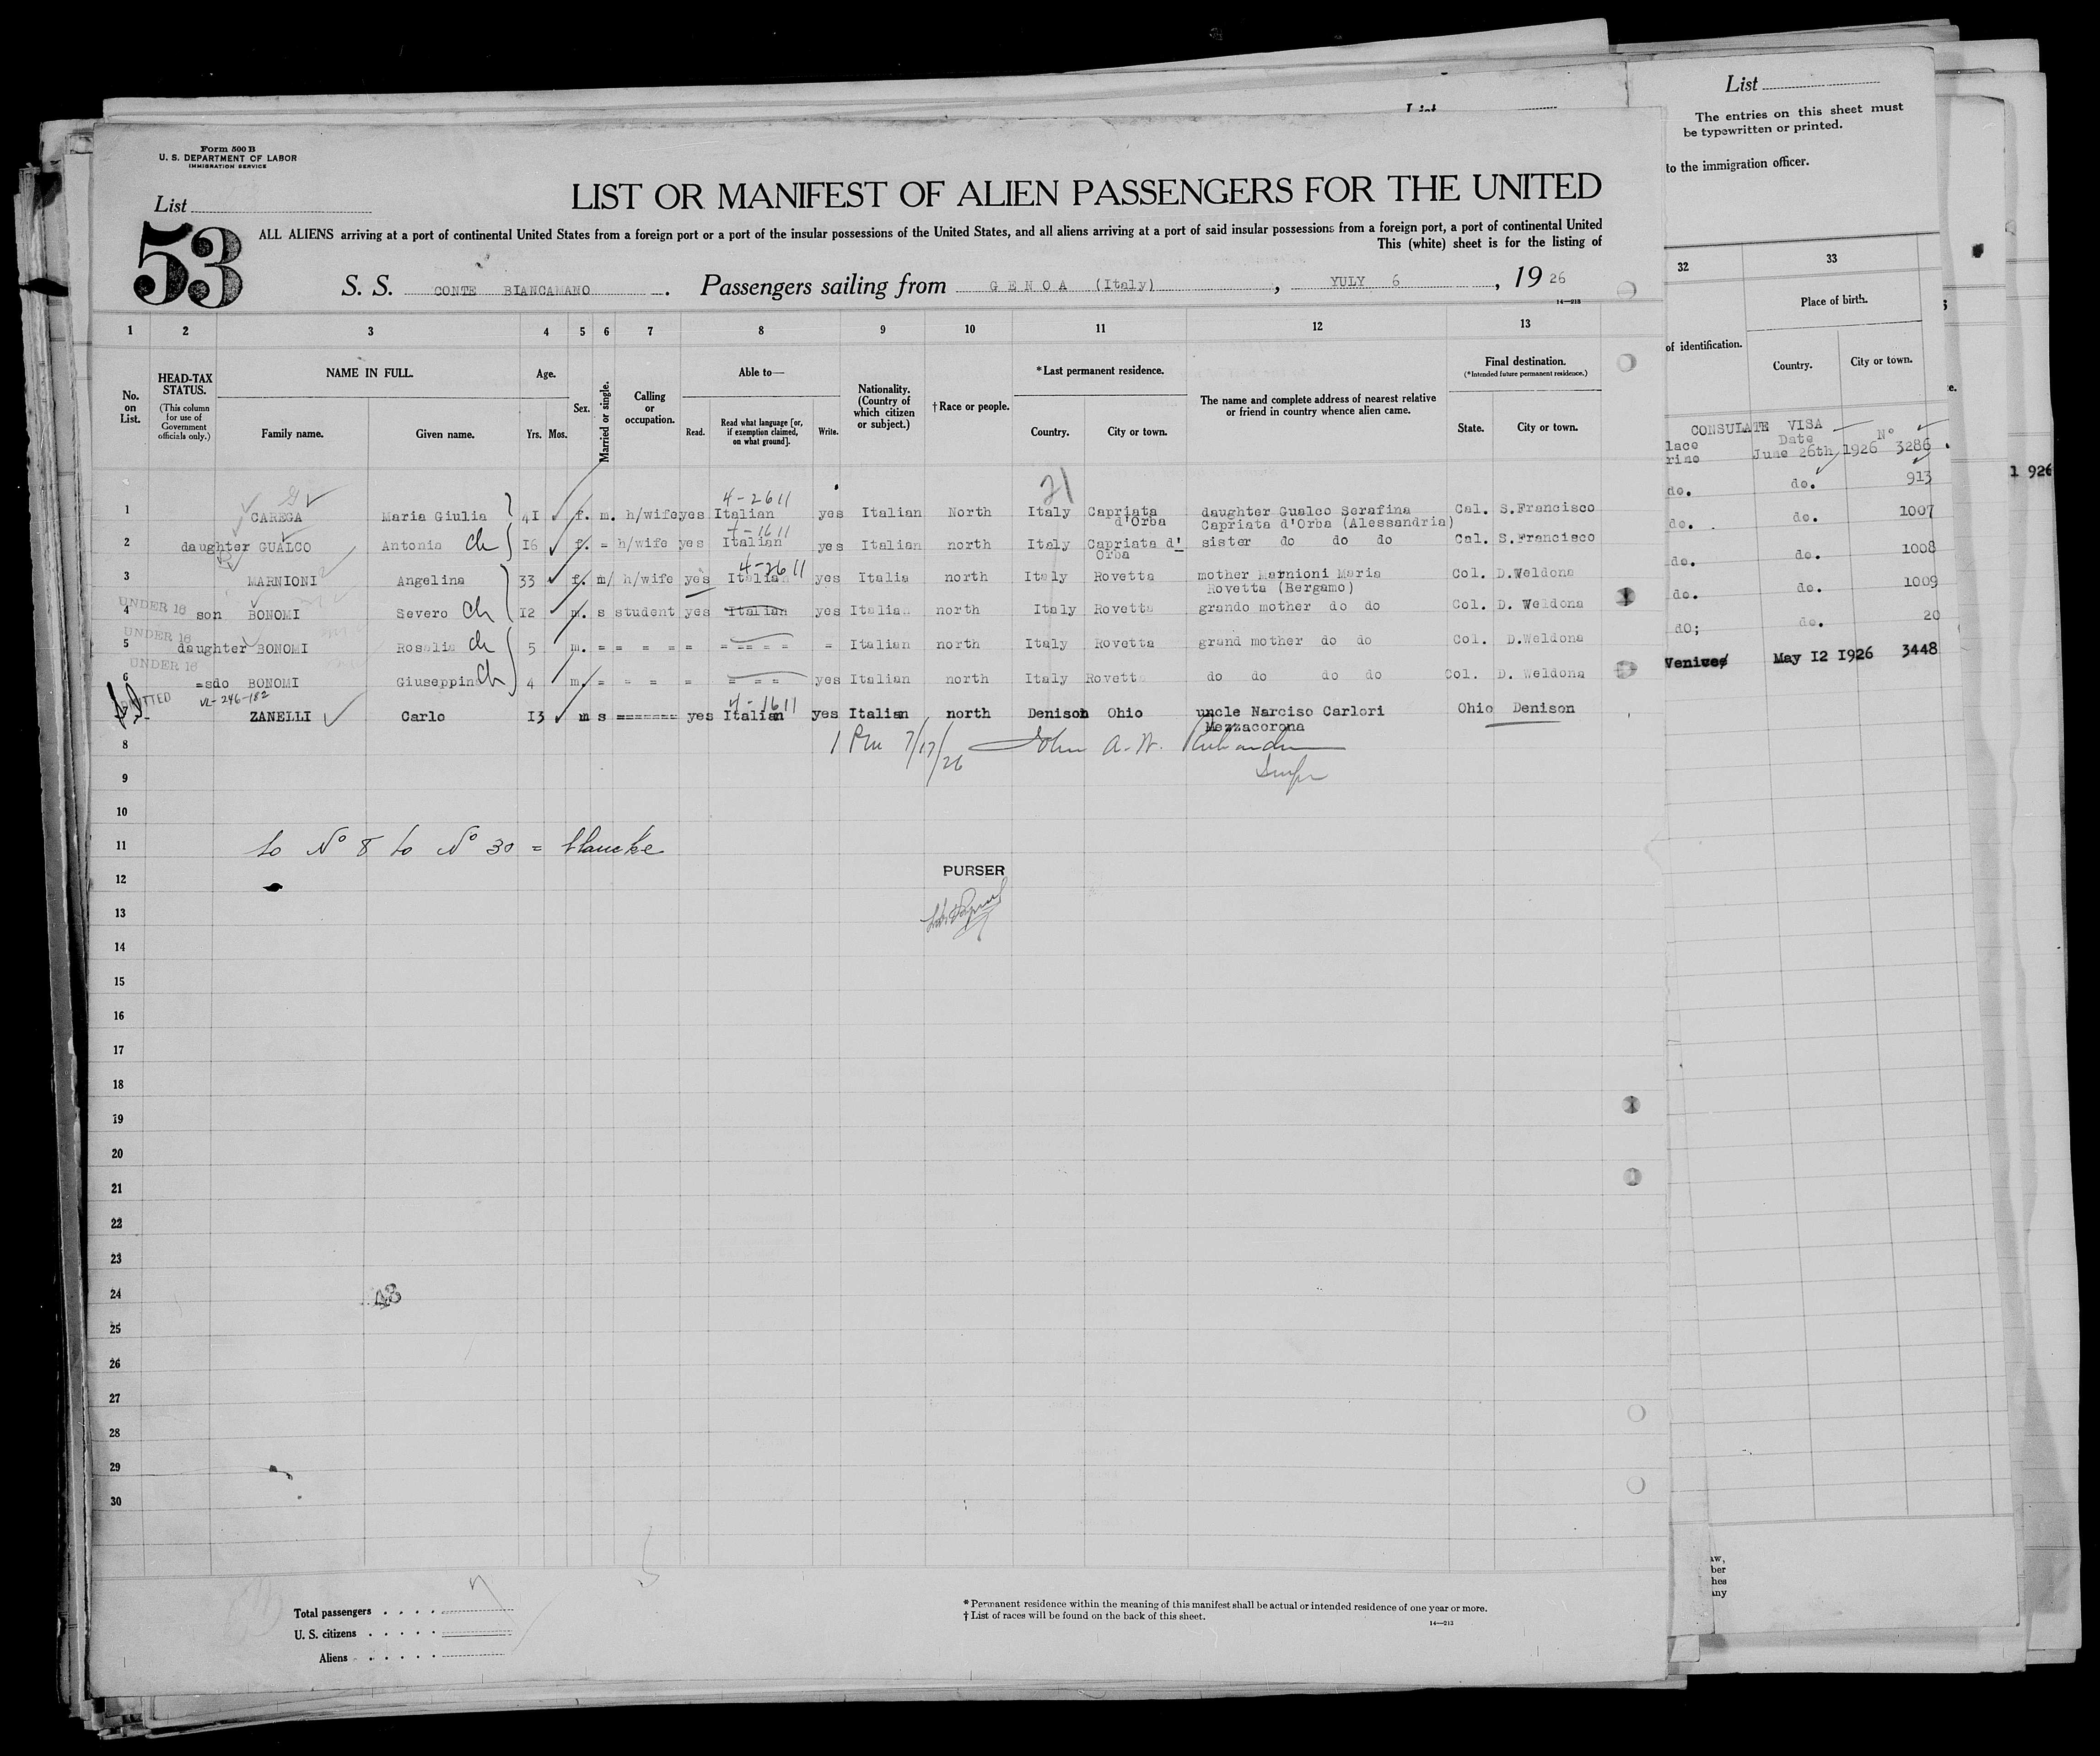 Form 500 B
U. S. DEPARTMENT OF LABOR
IMMIGRATION SERVICE
List
53
LIST OR MANIFEST OF ALIEN PASSENGERS FOR THE UNITED
ALL ALIENS arriving at a port of continental United States from a foreign port or a port of the insular possessions of the United States, and all aliens arriving at a port of said insular possessions from a foreign port, a port of continental United
This (white) sheet is for the listing of
S. S. CONTE BIANCAMANO . Passengers sailing from G E N O A (Italy) , YULY 6 , 19 26
14—213
1 2 3 4 5 6 7 8 9 10 11 12 13
No. on List.
HEAD-TAX STATUS.
(This column for use of Government officials only.)
NAME IN FULL.
Family name. Given name.
Age.
Yrs. Mos.
Sex.
Married or single.
Calling or occupation.
Able to—
Read. Read what language [or, if exemption claimed, on what ground]. Write.
Nationality. (Country of which citizen or subject.)
†Race or people.
*Last permanent residence.
Country. City or town.
The name and complete address of nearest relative or friend in country whence alien came.
Final destination.
(*Intended future permanent residence.)
State. City or town.
21
4-2611
1 CAREGA Maria Giulia 41 f. m. h/wife yes Italian yes Italian North Italy Capriata d'Orba daughter Gualco Serafina Capriata d'Orba (Alessandria) Cal. S.Francisco
4-1611
2 daughter GUALCO Antonia ch 16 f. = h/wife yes Italian yes Italian north Italy Capriata d' Orba sister do do do Cal. S.Francisco
4-2611
3 MARNIONI Angelina 33 f. m/ h/wife yes Italian yes Italia north Italy Rovetta mother Marnioni Maria Rovetta (Bergamo) Col. D.Weldona
UNDER 16
4 son BONOMI Severo ch 12 m. s student yes Italian yes Italian north Italy Rovetta grando mother do do Col. D. Weldona
UNDER 16
5 daughter BONOMI Rosalia ch 5 m. = = = = = = == = = = Italian north Italy Rovetta grand mother do do Col. D.Weldona
UNDER 16
6 =sdo BONOMI Giuseppin ch 4 m. = = = = = = = yes Italian north Italy Rovetta do do do do Col. D. Weldona
VL-246-182
4-1611
ZANELLI Carlo 13 m s ======= yes Italian yes Italian north Denison Ohio uncle Narciso Carlori Mezzacorona Ohio Denison
8 1 Pm 7/17/26 John A. W.
9
10
11 to No 8 to No 30 = blancke
12 PURSER
13
14
15
16
17
18
19
20
21
22
23
24
25
26
27
28
29
30
Total passengers . . . . 7
U. S. citizens . . . . .
Aliens . . . . . .
* Permanent residence within the meaning of this manifest shall be actual or intended residence of one year or more.
† List of races will be found on the back of this sheet.
14—213
List
The entries on this sheet must
be typewritten or printed.
to the immigration officer.
32 33
of identification.
Place of birth.
Country. City or town.
CONSULATE VISA
lace Date N°
rino June 26th 1926 3286
do. do. 913
do. do. 1007
do. do. 1008
do. do. 1009
do; do. 20
Venice May 12 1926 3448
1 926
aw,
ber
hes
any